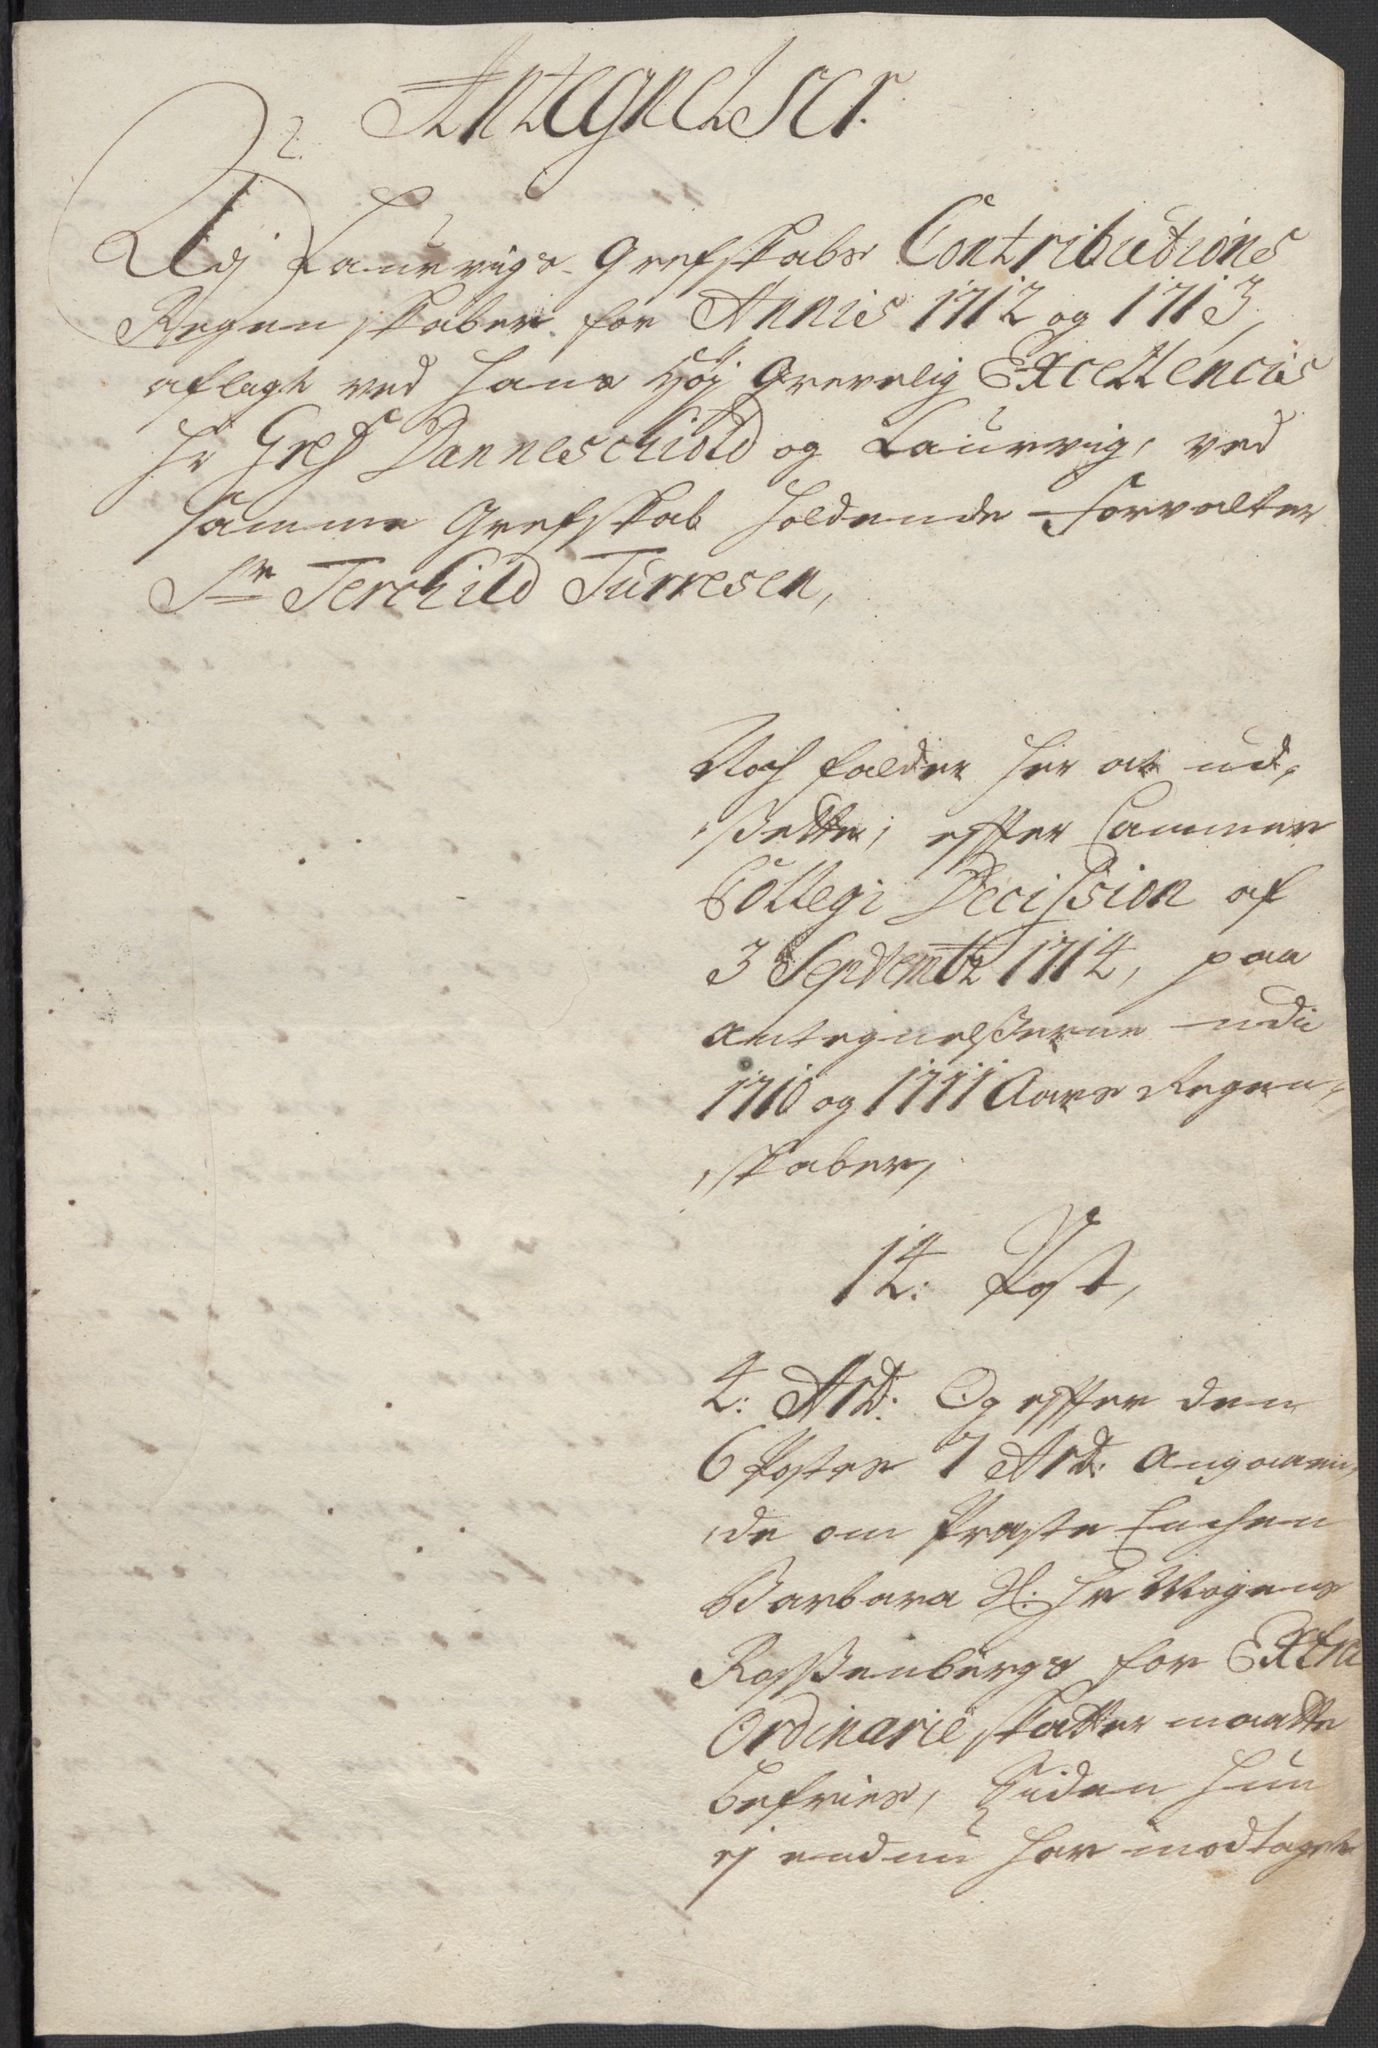 Antegnelser.
2.
Udj Laurvigs Grefskabs Contributions
Regenskaber for Annis 1712 og 1713,
aflagt ved hans Høj Grevelig Excellencis
Hr Gref Danneschiold og Laurvig, ved
samme Grefskab holdende Forvalter
Sr Terchild Turresen,
Noch falder her at ud-
sette, effter Cammer
Collegi Decission af
3 Septembr 1714, paa
antegnelsserne udi
1710 og 1711 Aars Regen-
skaber,
14: Post,
4: Art: Og effter den
6 Postes 7 Art: Angaaen-
de om Præste Enchen
Barbara Sl: Hr Mogens
Rossenbergs for Extra
Ordinarie skatter maatte
befries, Siden hun
ej endnu har modtaget